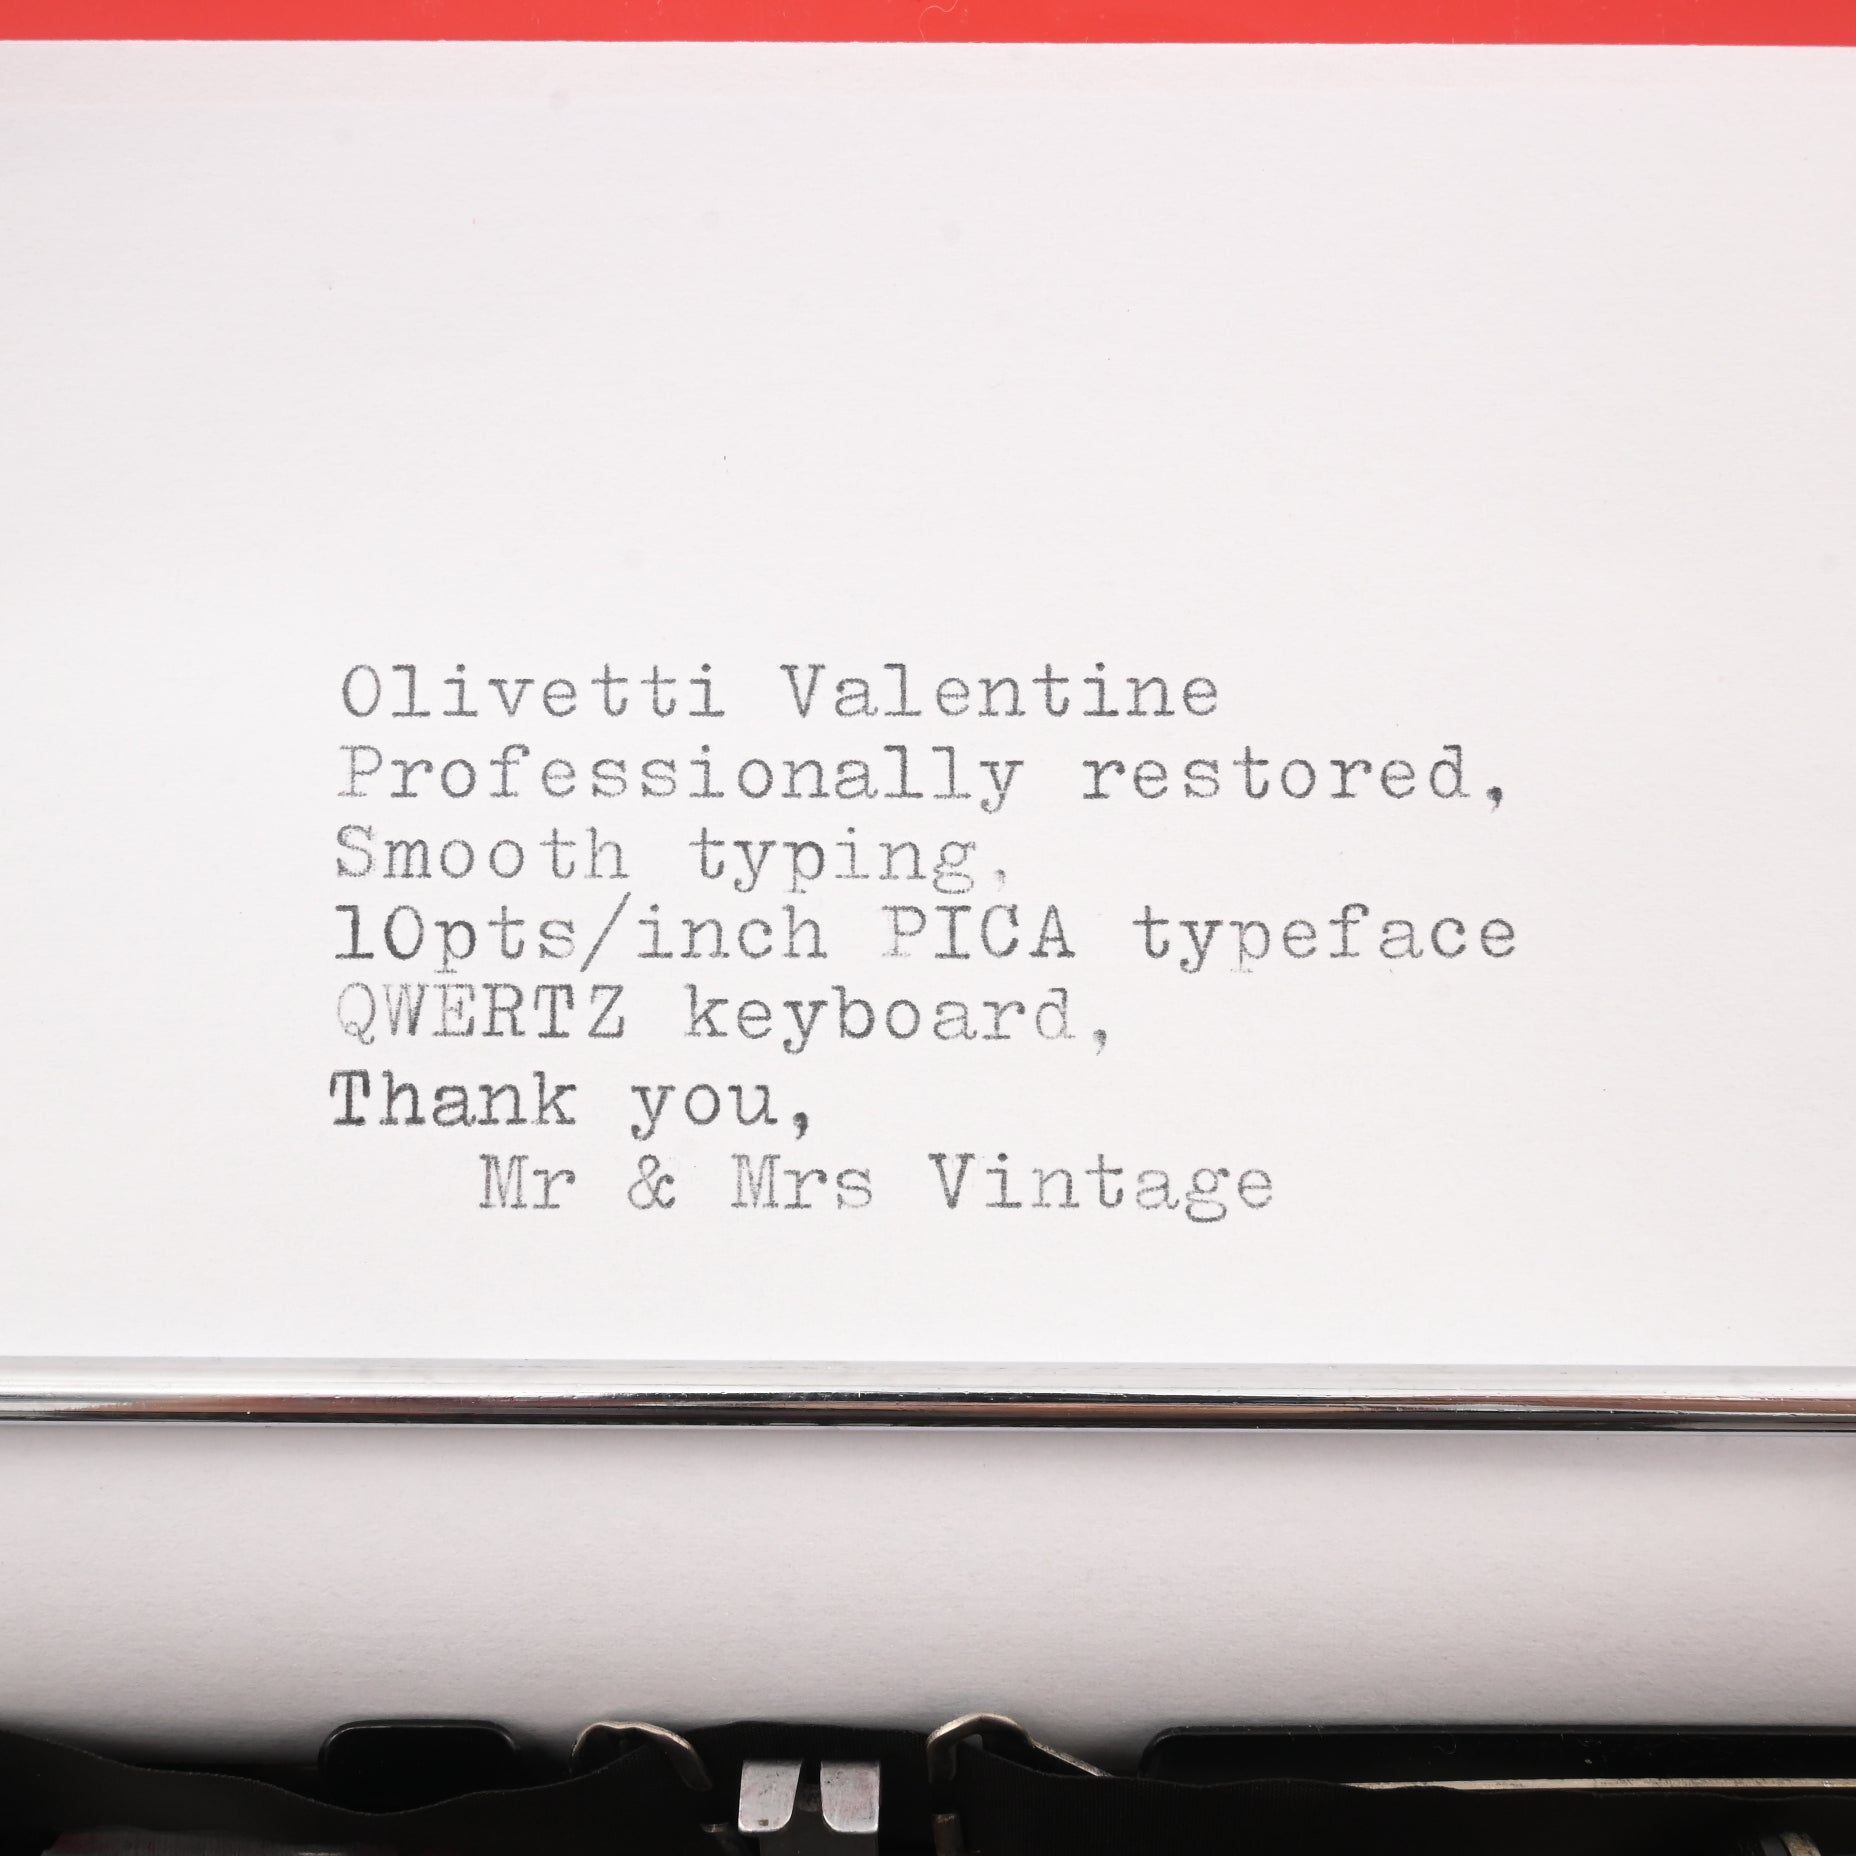 Olivetti Valentine
Professionally restored,
Smooth typing,
10pts/inch PICA typeface
QWERTZ keyboard,
Thank you,
Mr & Mrs Vintage